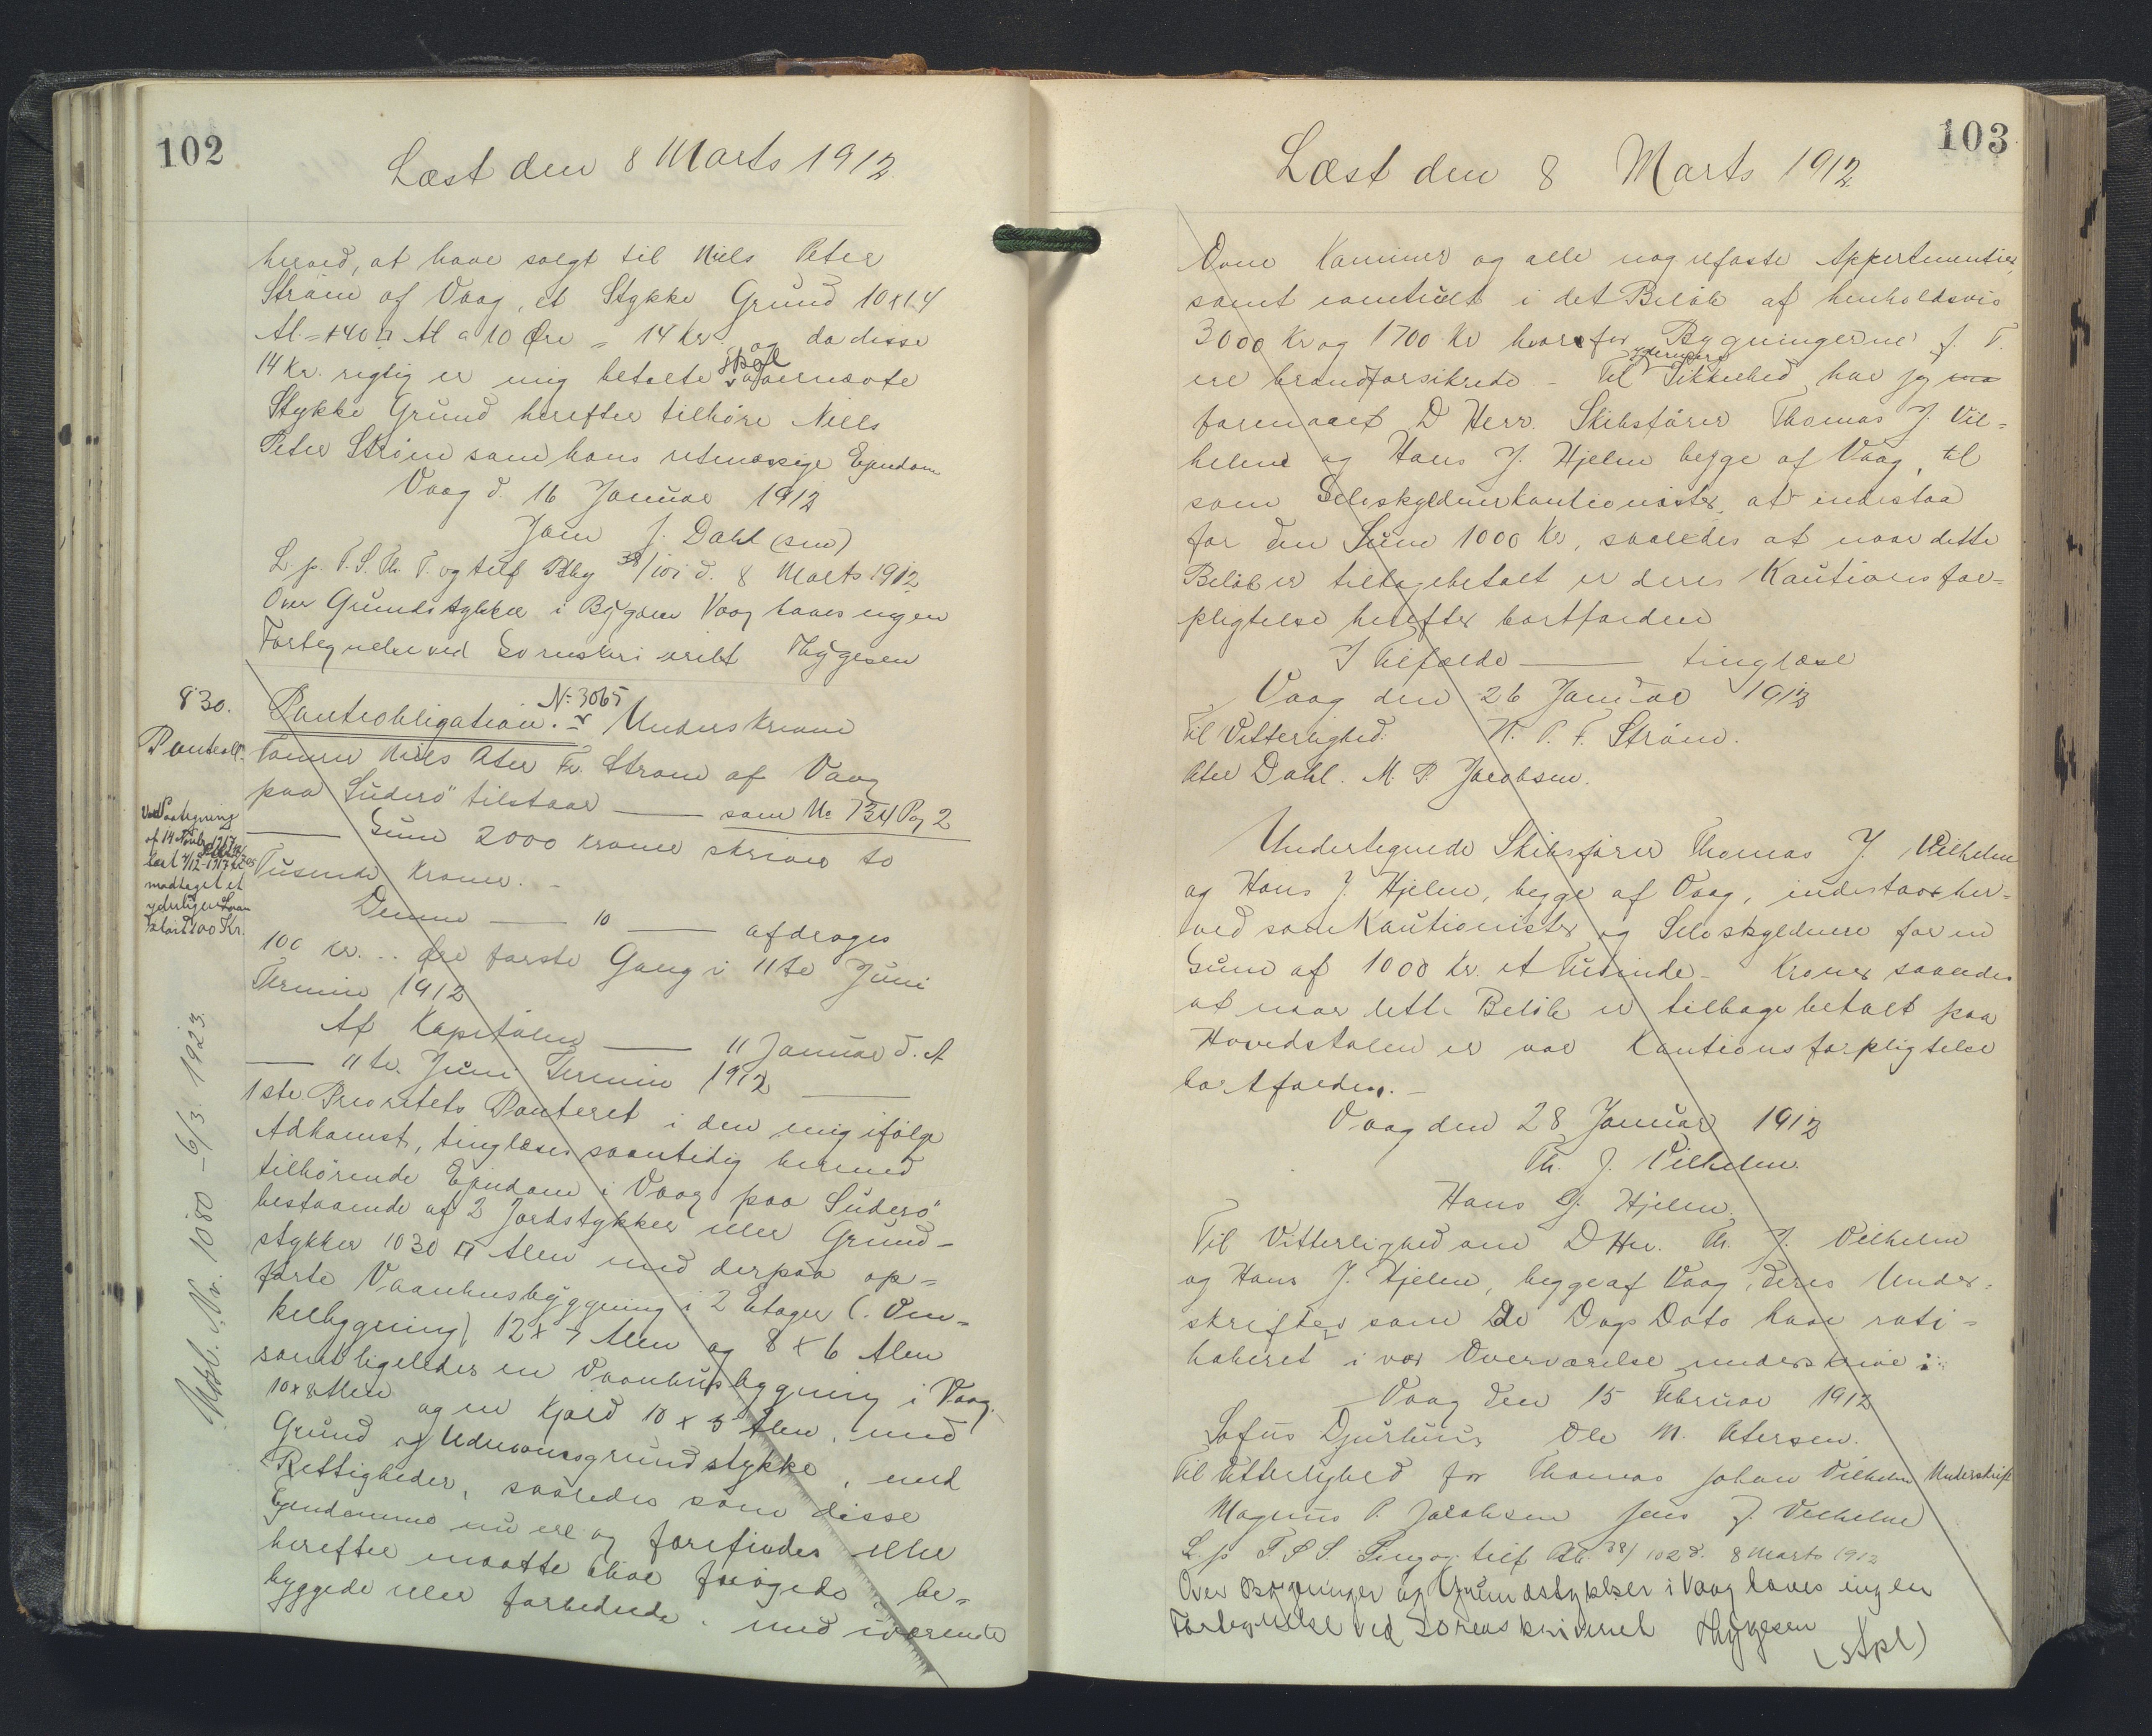 102
Læst den 8 Marts 1912
herved, at have solgt til Niels Peter
Strøm af Vaag, et Stykke Grund 10 x 14
Al. = 140 □ Al a 10 Øre = 14 Kr. og da disse
14 Kr. rigtig er mig betalte skal ovennævnte
Stykke Grund herefter tilhøre Niels
Peter Strøm som hans retmæssige Ejendom
Vaag d. 16 Januar 1912
J. Dahl (sen)
L. p. T. S. Th. T. og tilf 38/101 d. 8 Marts 1912
Over Grundstykker i Bygden Vaag haves ingen
Fortegnelse ved Sorenskriveriet Thygesen
830.
Pantobl.
Pantiobligation. N: 3065 Underskrevne
Tømrer Niels Peter Fr. Strøm af Vaag
paa Suderø tilstaar — som No 734 Pag 2
— Sum 2000 Kroner skriver to
Tusinde Kroner. -
Ved Paategning
af 14 Novbr 1917
læst 4/12-1917
modtaget et
yderligere Laan
stort 100 Kr.
Denne — 10 — afdrages
100 Kr. .. Øre første Gang i 11te Juni
Termin 1912
Af Kapitalen — 11 Januar d. A
— 11te Juni Termin 1912 —
1ste Prioritets Panteret i den mig ifølge
Adkomst, tinglæses samtidig hermed
tilhørende Ejendom i Vaag paa Suderø
bestaaende af 2 Jordstykker eller Grund-
stykker 1030 □ Alen med derpaa op=
førte Vaanhusbyggning i 2 Etager (. Vin=
kelbygning) 12 x 7 Alen og 8 x 6 Alen
samt ligeledes en Vaanhusbygning i Vaag
10 x 8 Alen og en Kjæld 10 x 5 Alen, med
Grund og Udenomsgrundstykke, med
Rettigheder, saaledes som disse
Ejendomme nu ere og forefindes eller
herefter maatte blive forøgede, be=
byggede eller forbedrede. med iværende
Udsl. N. Nr. 1080 - 6/3 1923.
103
Læst den 8 Marts 1912
Ovne Kaminer og alle nagelfaste Appertinentier,
samt eventuelt i det Beløb af henholdsvis
3000 Kr og 1700 Kr hvorfor Bygningerne f. T.
ere brandforsikrede - Til yderligere Sikkerhed har jeg
formaaet D Herr. Skibsfører Thomas J. Vil=
helm og Hans J. Hjelm begge af Vaag, til
som Selvskyldnerkautionister, at indestaa
for den Sum 1000 Kr, saaledes at naar dette
Beløb er tilbagebetalt er deres Kautionsfor=
pligtelse herefter bortfalden
I Tilfælde — tinglæse
Vaag den 26 Januar 1912
Til Vitterlighed: N. P. F. Strøm.
Peter Dahl. M. P. Jacobsen.
Undertegnede Skibsfører Thomas J. Vilhelm
og Hans J. Hjelm, begge af Vaag, indestaar her-
ved som Kautionister og Selvskyldnere for en
Sum af 1000 Kr. et Tusinde - Kroner saaledes
at naar dette Beløb er tilbagebetalt paa
Hovedstolen er vor Kautionsforpligtelse
bortfalden. -
Vaag den 28 Januar 1912
Th. J. Vilhelm.
Hans J. Hjelm.
Til Vitterlighed om D Hrr. Th. J. Vilhelm
og Hans J. Hjelm, begge af Vaag, deres Under-
skrifter som De Dags Dato have rati=
haberet i vor Overværelse underskrive:
Vaag den 15 Februar 1912
Sofus Djurhuus Ole M. Petersen.
Til Vitterlighed for Thomas Johan Vilhelm Underskrift
Magnus P. Jacobsen Jens J. Vilhelm
L. p T S S. Ting og tilf 38/102 d. 8 Marts 1912
Over Bygninger og Grundstykker i Vaag haves ingen
Fortegnelse ved Sorenskriveriet Thygesen
(Stpl)